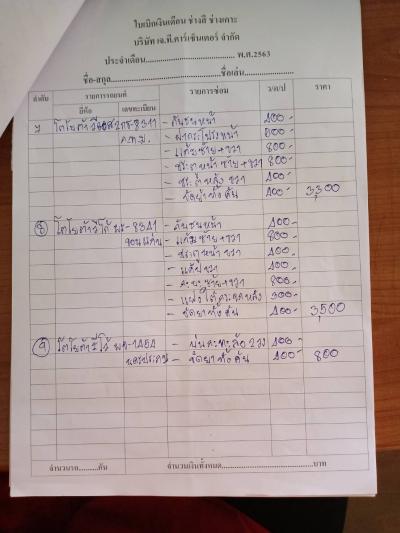 ใบเบิกเงินเดือน ช่างสี ช่างเคาะ
บริษัท เจ.ที.คาร์เซ็นเตอร์ จำกัด
ประจำเดือน.............................. พ.ศ.2563
ชื่อ-สกุล..............................ชื่อเล่น..............................
ลำดับ รายการรถยนต์ รายการซ่อม ว/ด/ป ราคา
ยี่ห้อ เลขทะเบียน
7 โตโยต้า 8311 - กันชนหน้า 400-
ก.ท.ม. - ฝากระโปรงหน้า 800-
- แก้มซ้าย+ขวา 800-
- ประตูหน้า ซ้าย+ขวา 800-
- ประตูหลัง ขวา 400-
- ขัดยาทั้งคัน 400- 3,300
8 โตโยต้าวีโก้ 8341 - กันชนหน้า 400-
ขอนแก่น - แก้มซ้าย+ขวา 800-
- ประตูหน้า ขวา 400-
- ขวา 400-
- ซ้าย+ขวา 800-
- 300-
- ขัดยาทั้งคัน 400- 3,500
9 โตโยต้าวีโก้ 1454 - 2 วง 400-
- ขัดยาทั้งคัน 400- 800
จำนวนรถ.........คัน จำนวนเงินทั้งหมด..............................บาท